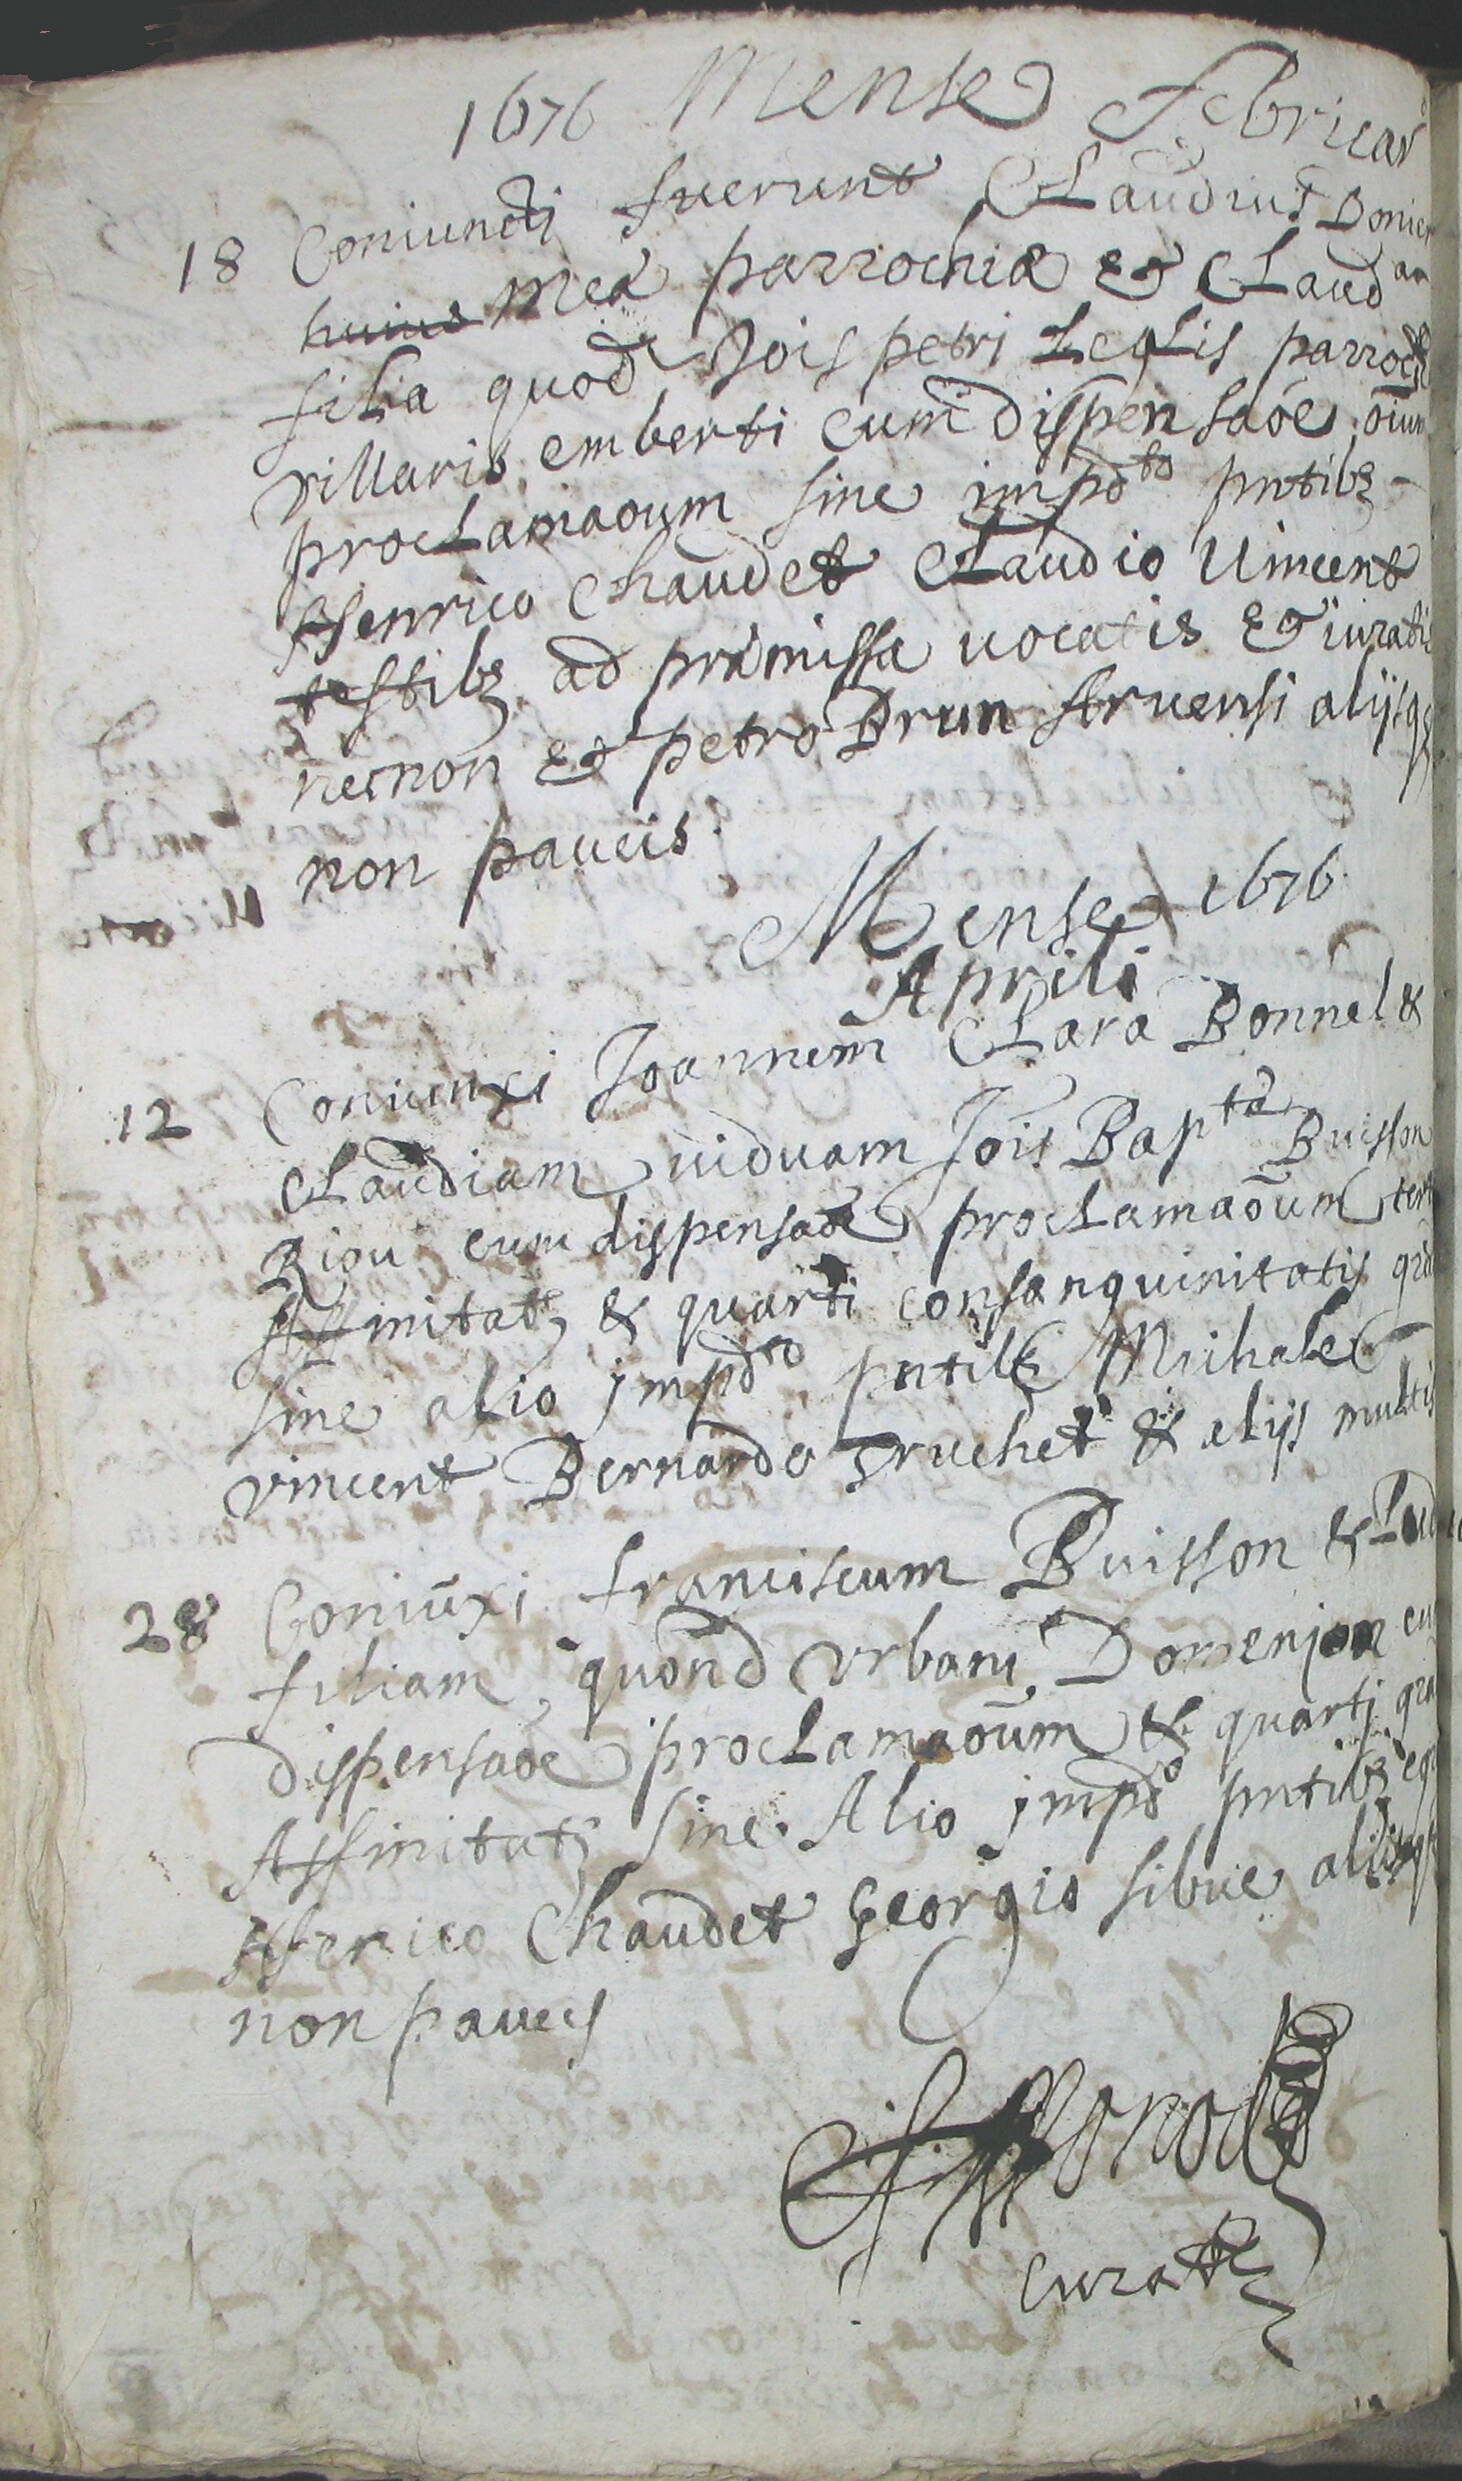 1676 Mense Februar
18 Coniuncti fuerunt Claudius Donier
huius mea parrochia et Claud an
filia quod Jois petri Leglis parroch
villaris emberti cum dispensaoe oium
proclamaoum sine impdto pntibz
Henrico Chaudet Claudio Vincent
testibz ad prämissa uocatis et iuratis
necnon et petro Brun Aruensi alijsqz
non paucis.
Mense 1676
Aprili
12 Coniunxi Joannem Clara Bonnel &
Claudiam uiduam Jois Bapta Buisson
Riou cum dispensaoe proclamaoum tert
Affinitatz & quarti consanguinitatis grad
sine alio impdto pntibz Michale
vincent Bernardo Truchet & alijs multis
28 Coniuxi franciscum Buisson & Lud
filiam quond Vrbani Domenjon cu
dispensaoe proclamaoum & quarti gra
Affinitatz sine Alio impdo pntibz
Henrico Chaudet Georgio sibue alijsqz
non paucis
curatz